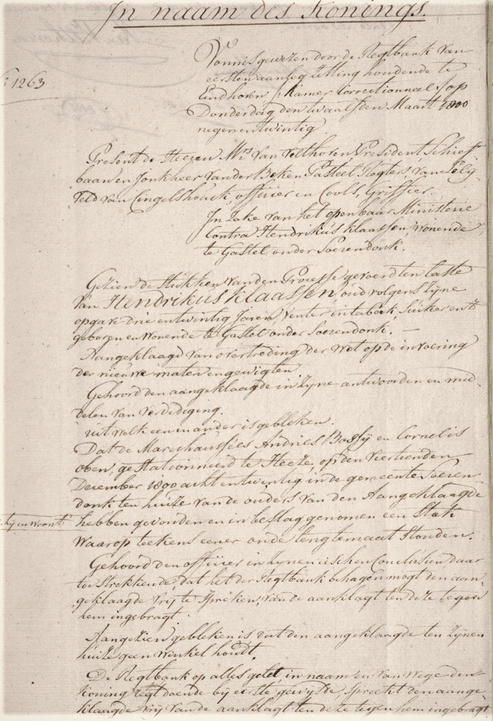 In naam des Konings.
N 1263
Vonnis gewezen door de Regtbank van
eersten aanleg zitting houdende te
Eindhoven /Kamer Correctionneel/ op
Donderdag den twaalfden Maart 1800
negenentwintig
Present de Heeren Mrs van Velthoven President, Schief-
baan en Jonkheer van der Beken Pasteel Regters, van
veld van Cingelshouck, officier en Cools, Griffier.
In zake van het openbaar Ministerie
Contra Hendrikus Klaassen, wonende
te Gastel onder Soerendonk.
Gezien de stukken van den Processe gevoerd ten laste
van Hendrikus Klaassen oud volgens zyne
opgave drie en twintig Jaren venter in tabak suiker enz
geboren en wonende te Gastel onder Soerendonk. —
Aangeklaagd van overtreding der wet op de invoering
der nieuwe maten en gewigten.
Gehoord den aangeklaagde in zyne antwoorden en mid-
delen van verdediging.
uit welk een en ander is gebleken.
Dat de Marechaussees Andries Brassy en Cornelis
oben, gestationneerd te Heeze, op den veertienden
December 1800 acht en twintig in de gemeente Soeren-
donk ten huize van de ouders van den Aangeklaagde
hebben gevonden en in beslag genomen een
waarop teekens eener oude lengtemaat stonden.
Gehoord den officier in zynen Conclusien daar
toe strekkende, dat het der Regtbank behagen mogt den aan-
geklaagde vrij te spreken, van de aanklagt ten deze tegen
hem ingebragt.
Aangezien gebleken is dat den aangeklaagde ten zynen
huize geen winkel houdt.
De Regtbank op alles gelet in naam en van wege den
Koning regtdoende bij eerste gewijsde spreekt den aange-
klaagde vrij van de aanklagt ten deze tegen hem ingebragt